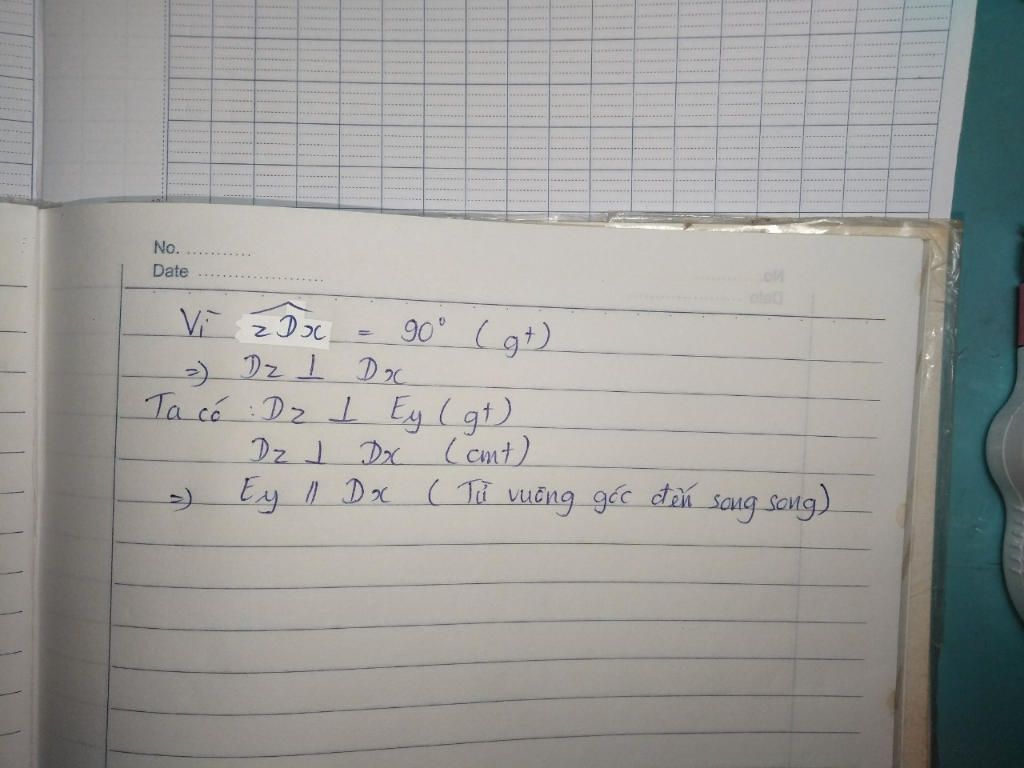 No. ............
Date .......................
Vì zDx = 90° (gt)
=> Dz ⊥ Dx
Ta có : Dz ⊥ Ey (gt)
Dz ⊥ Dx (cmt)
=> Ey // Dx (Từ vuông góc đến song song)